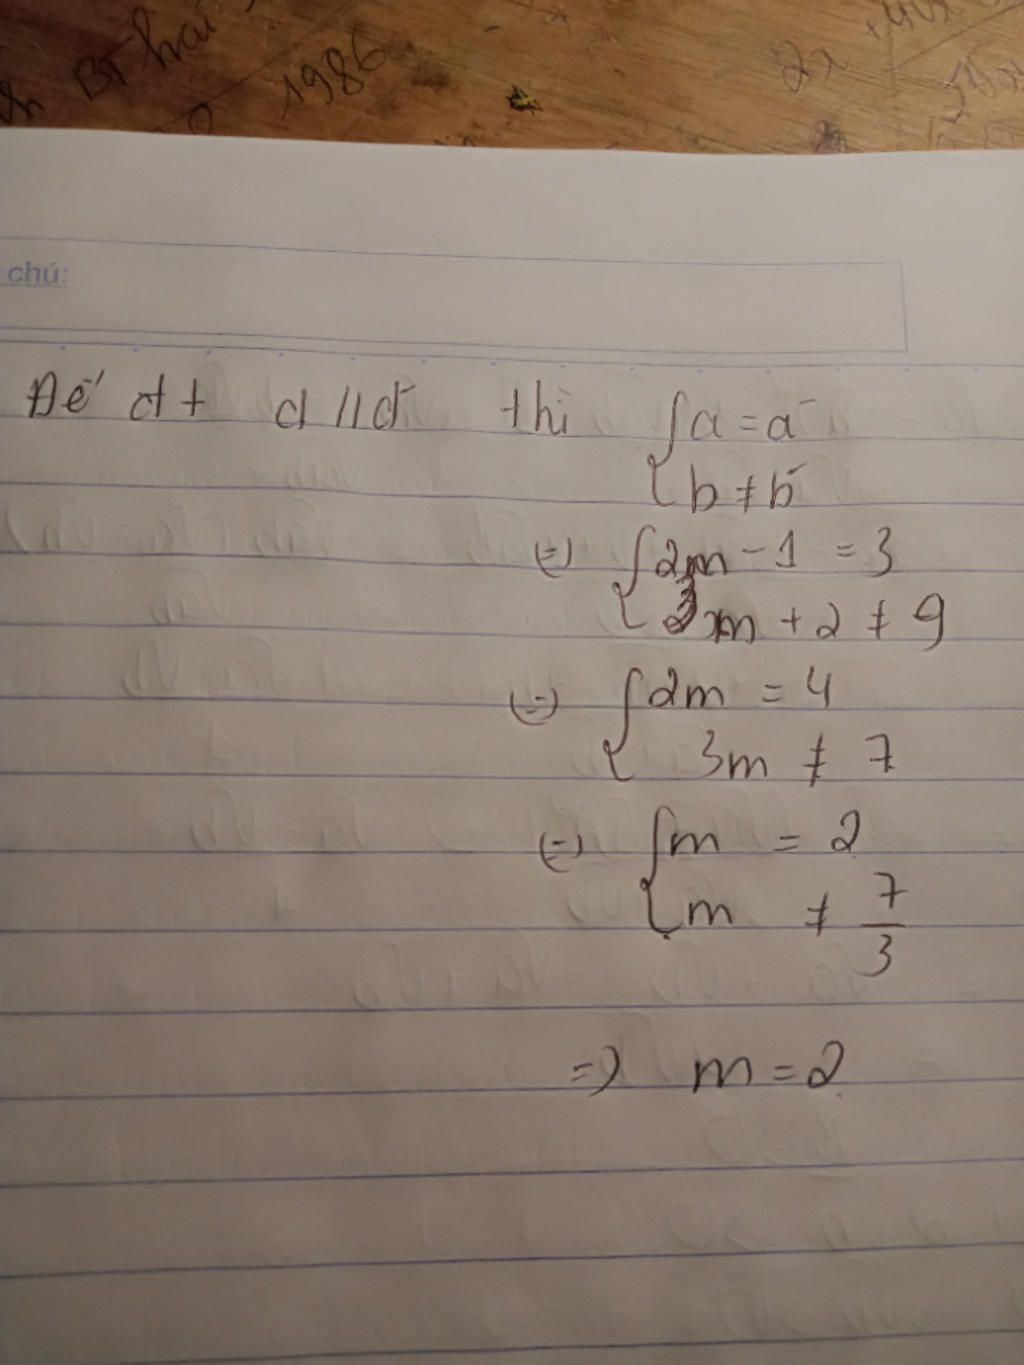 BT hai
1986
2x
chú:
Để đt d // d' thì { a = a'
b ≠ b'
(=) { 2m - 1 = 3
3m + 2 ≠ 9
(=) { 2m = 4
3m ≠ 7
(=) { m = 2
m ≠ 7/3
=) m = 2